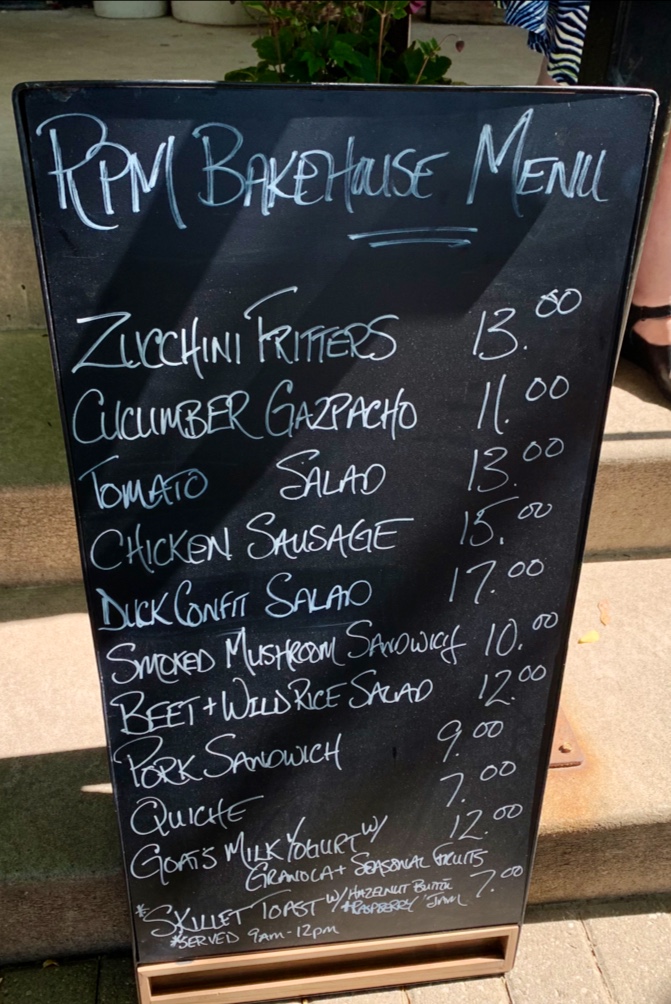 RPM BAKEHOUSE MENU
ZUCCHINI FRITTERS 13.00
CUCUMBER GAZPACHO 11.00
TOMATO SALAD 13.00
CHICKEN SAUSAGE 15.00
DUCK CONFIT SALAD 17.00
SMOKED MUSHROOM SANDWICH 10.00
BEET + WILD RICE SALAD 12.00
PORK SANDWICH 9.00
QUICHE 7.00
GOAT'S MILK YOGURT W/ 12.00
GRANOLA + SEASONAL FRUITS
*SKILLET TOAST W/ HAZELNUT BUTTER 7.00
+ RASPBERRY JAM
*SERVED 9am-12pm